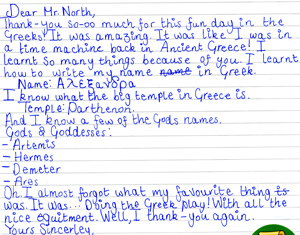 Dear Mr. North,
Thank-you so-oo much for this fun day in the
Greeks! It was amazing. It was like I was in
a time machine back in Ancient Greece! I
learnt so many things because of you. I learnt
how to write my name name in Greek.
Name: Αλεξανδρα
I know what the big temple in Greece is.
Temple: Parthenon.
And I know a few of the Gods names.
Gods & Goddesses:
- Artemis
- Hermes
- Demeter
- Ares
Oh I almost forgot what my favourite thing is
was. It was... Doing the Greek play! With all the
nice equitment. Well, I thank-you again.
Yours Sincerley,